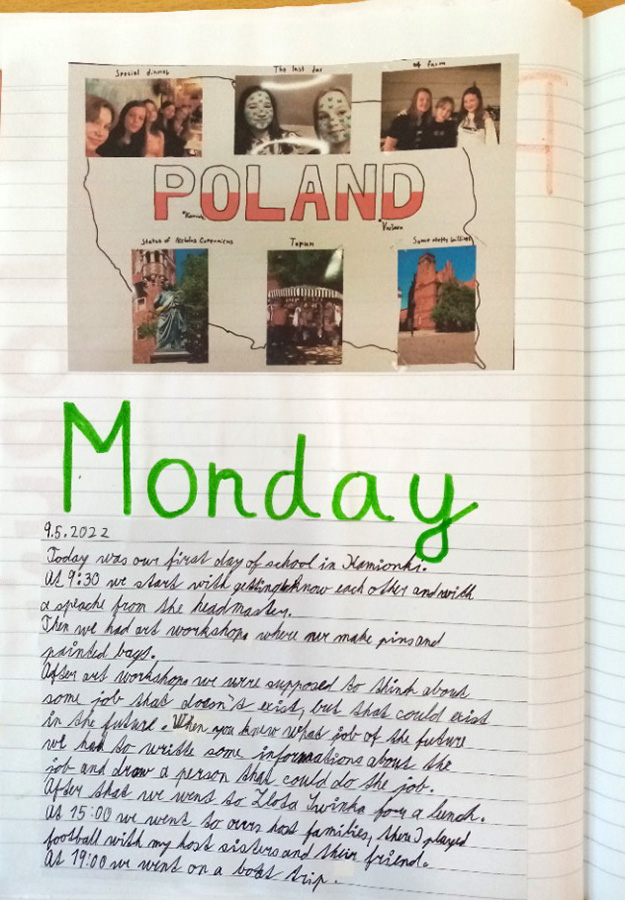 Special dinner
The last day
at farm
POLAND
Statue of Nicholas Copernicus
Monday
9.5.2022
Today was our first day of school in Kamionki.
At 9:30 we start with getting know each other and with
a speache from the headmaster.
Then we had art workshops where we make pins and
painted bags.
After art workshops we were supposed to think about
some job that doesn't exist, but that could exist
in the future. When you knew what job of the future
we had to writte some informations about the
job and draw a person that could do the job.
After that we went to Zlota Swinka for a lunch.
At 15:00 we went to ours host families, there I played
football with my host sisters and their friend.
At 19:00 we went on a boat trip.